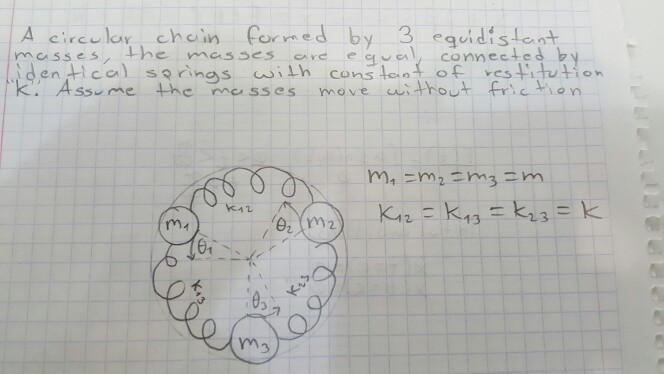 A circular chain formed by 3 equidistant
masses, the masses are equal, connected by
identical springs with constant of restitution
"k". Assume the masses move without friction
m₁ = m₂ = m₃ = m
k₁₂ = k₁₃ = k₂₃ = k
k₁₂
m₁
θ₂
m₂
θ₁
k₁₃
k₂₃
θ₃
m₃